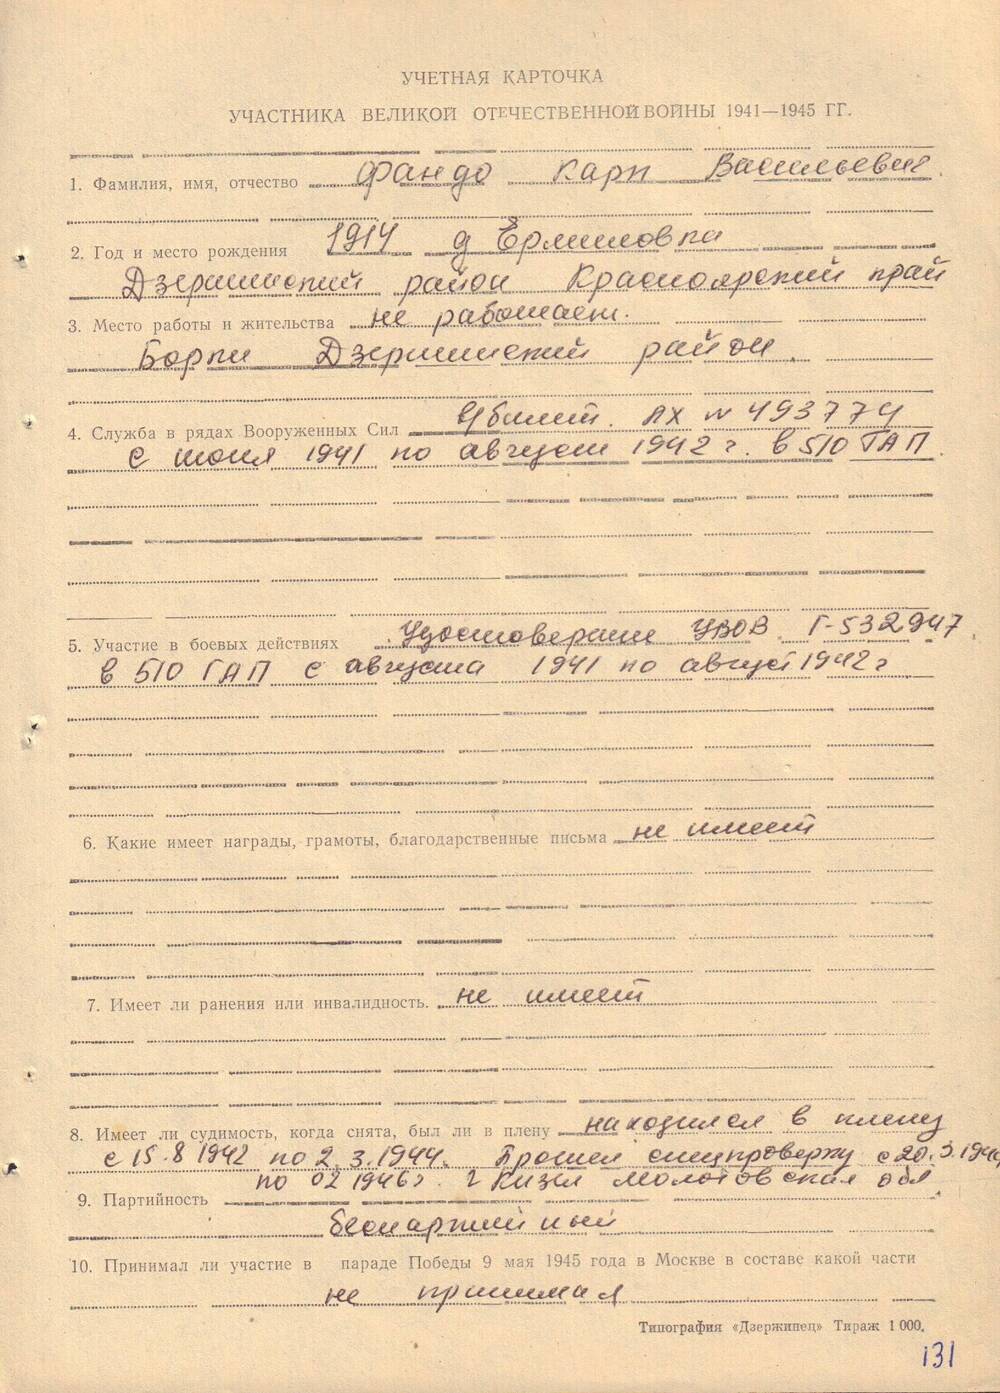 УЧЕТНАЯ КАРТОЧКА
УЧАСТНИКА ВЕЛИКОЙ ОТЕЧЕСТВЕННОЙ ВОЙНЫ 1941—1945 ГГ.
1. Фамилия, имя, отчество Фандо Карп Васильевич
2. Год и место рождения 1914 д Ермиловка
Дзержинский район Красноярский край
3. Место работы и жительства не работает.
Борки Дзержинский район.
4. Служба в рядах Вооруженных Сил АХ № 493774
с июня 1941 по август 1942 г. в 510 ГАП.
5. Участие в боевых действиях Удостоверение УВОВ Г-532947
в 510 ГАП с августа 1941 по август 1942 г
6. Какие имеет награды, грамоты, благодарственные письма не имеет
7. Имеет ли ранения или инвалидность. не имеет
8. Имеет ли судимость, когда снята, был ли в плену находился в плену
с 15.8 1942 по 2.3.1944. Прошел спецпроверку с 20.3.1944
по 02 1946 г. г Кизел Молотовская обл.
9. Партийность
беспартийный
10. Принимал ли участие в параде Победы 9 мая 1945 года в Москве в составе какой части
не принимал
Типография «Дзержинец» Тираж 1 000.
131